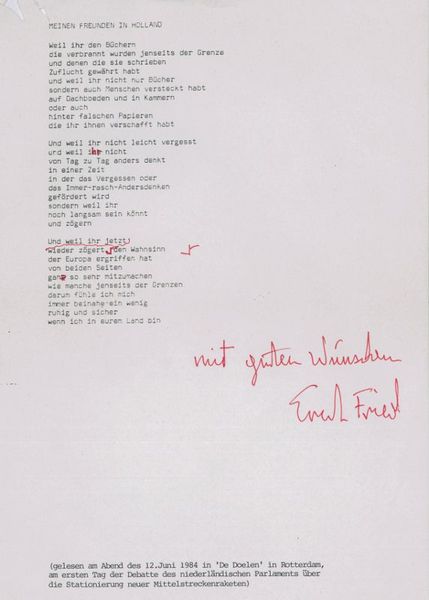 MEINEN FREUNDEN IN HOLLAND
Weil ihr den Büchern
die verbrannt wurden jenseits der Grenze
und denen die sie schrieben
Zuflucht gewährt habt
und weil ihr nicht nur Bücher
sondern auch Menschen versteckt habt
auf Dachboeden und in Kammern
oder auch
hinter falschen Papieren
die ihr ihnen verschafft habt
Und weil ihr nicht leicht vergesst
und weil ihr nicht
von Tag zu Tag anders denkt
in einer Zeit
in der das Vergessen oder
das Immer-rasch-Andersdenken
gefördert wird
sondern weil ihr
noch langsam sein könnt
und zögern
Und weil ihr jetzt
wieder zögert den Wahnsinn
der Europa ergriffen hat
von beiden Seiten
ganz so sehr mitzumachen
wie manche jenseits der Grenzen
darum fühle ich mich
immer beinahe ein wenig
ruhig und sicher
wenn ich in eurem Land bin
mit guten Wünschen
Erich Fried
(gelesen am Abend des 12.Juni 1984 in 'De Doelen' in Rotterdam,
am ersten Tag der Debatte des niederländischen Parlaments über
die Stationierung neuer Mittelstreckenraketen)